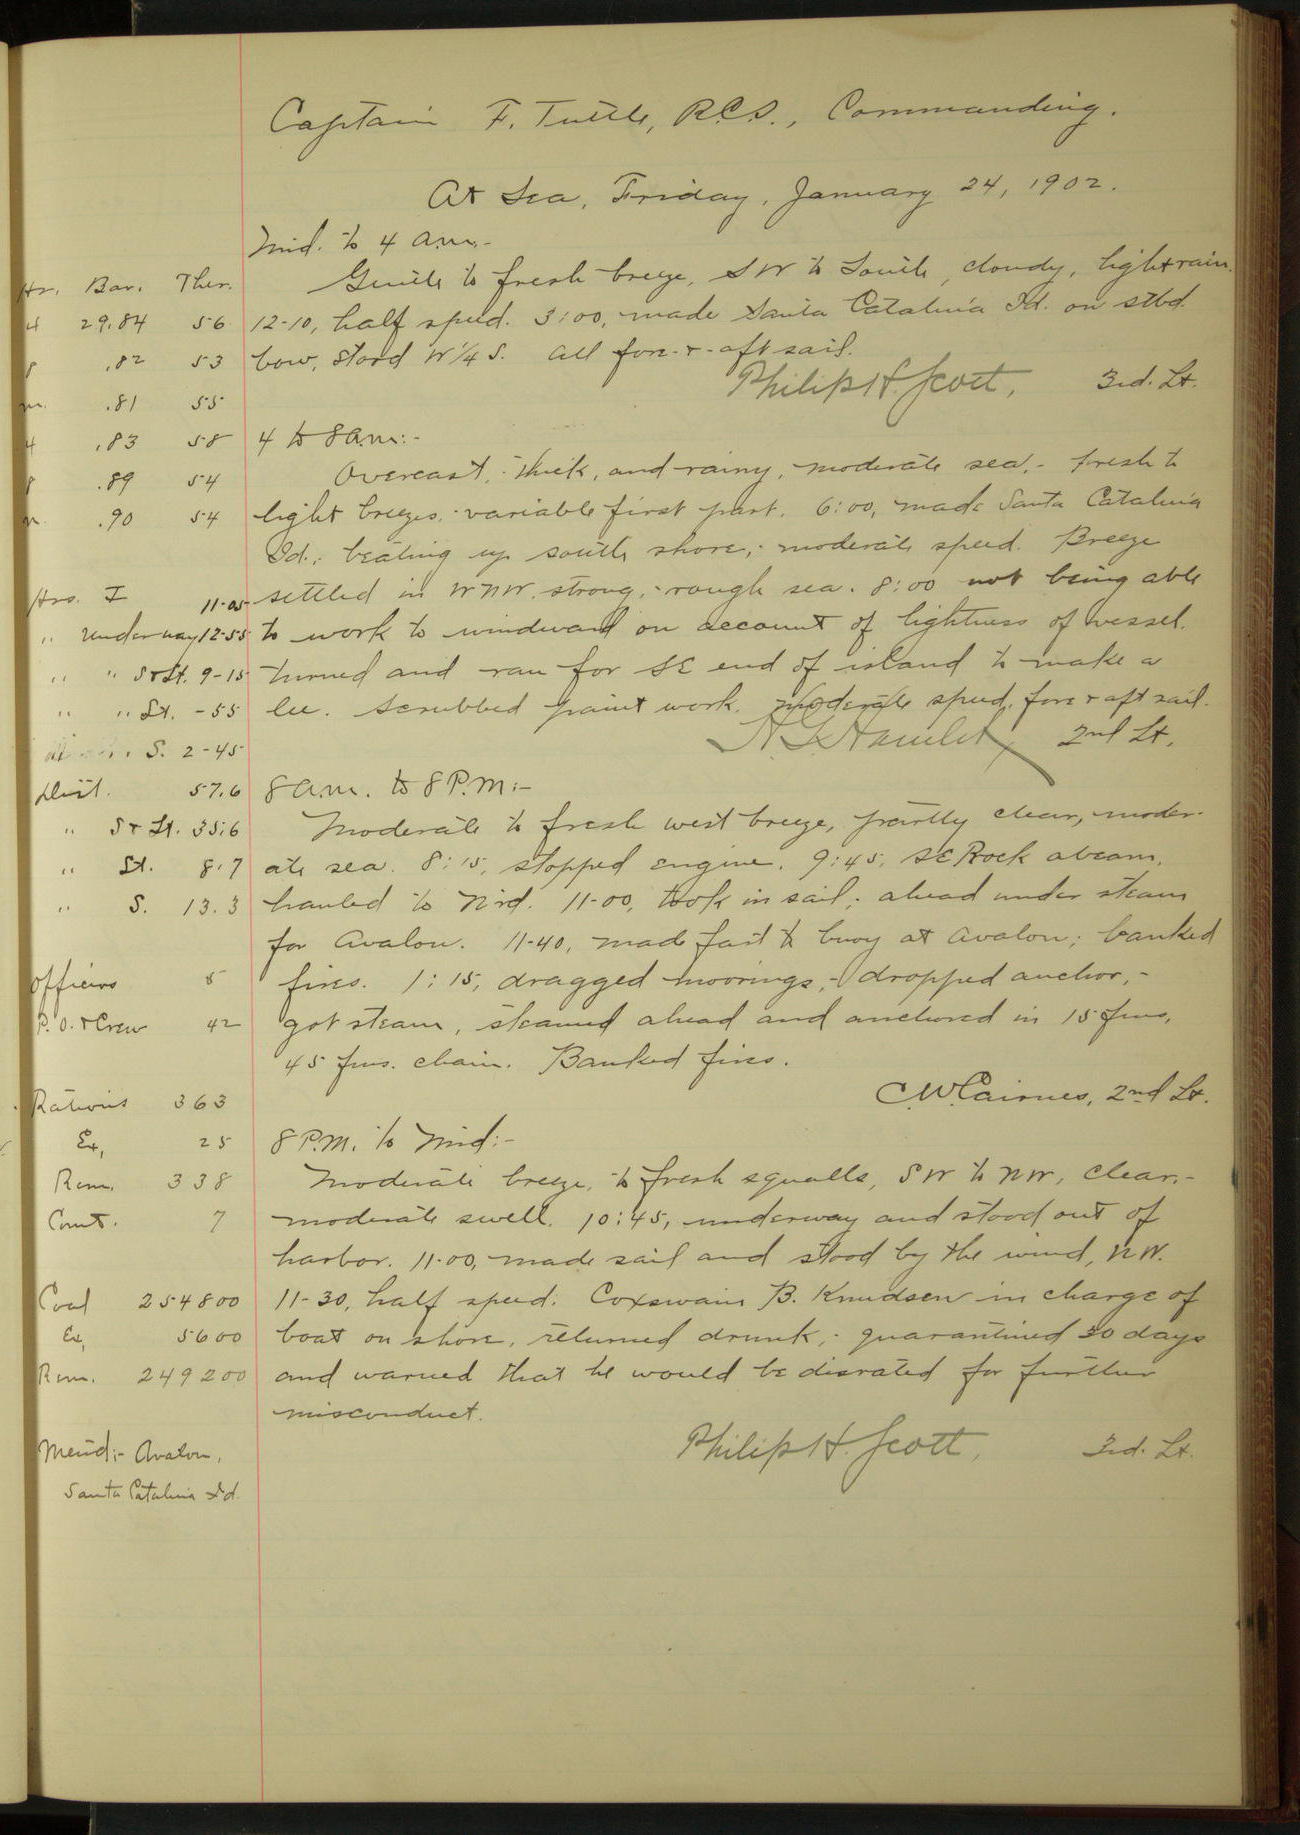 Captain F. Tuttle, R.C.S., Commanding.
At Sea, Friday, January 24, 1902.
Mid. to 4 a.m.-
Gentle to fresh breeze, SW to South, cloudy, light rain.
12-10, half speed. 3:00, made Santa Catalina Id. on stbd.
bow, stood W 1/4 S. All fore-&-aft sail.
Philip H. Scott, 3rd. Lt.
4 to 8 a.m:-
Overcast, thick, and rainy, moderate sea,- fresh to
light breezes, variable first part. 6:00, made Santa Catalina
Id.; beating up south shore; moderate speed. Breeze
settled in WNW, strong,- rough sea. 8:00 not being able
to work to windward on account of lightness of vessel,
turned and ran for SE end of island to make a
lee. Scrubbed paint work. Moderate speed, fore & aft sail.
H G Hamlet, 2nd Lt.
8 a.m. to 8 P.M:-
Moderate to fresh west breeze, partly clear, moder-
ate sea. 8:15, stopped engine. 9:45, SE Rock abeam,
hauled to N'rd. 11-00, took in sail; ahead under steam
for Avalon. 11-40, made fast to buoy at Avalon; banked
fires. 1:15, dragged moorings,- dropped anchor,-
got steam, steamed ahead and anchored in 15 fms,
45 fms. chain. Banked fires.
C.W. Cairnes, 2nd Lt.
8 P.M. to Mid:-
Moderate breeze, to fresh squalls, SW to NW, clear,-
moderate swell. 10:45, underway and stood out of
harbor. 11-00, made sail and stood by the wind, NW.
11-30, half speed. Coxswain B. Knudsen in charge of
boat on shore, returned drunk,- quarantined 30 days
and warned that he would be disrated for further
misconduct.
Philip H. Scott, 3rd. Lt.
Hr. Bar. Ther.
4 29.84 56
8 .82 53
m. .81 55
4 .83 58
8 .89 54
m. .90 54
Hrs. I 11-05
" Underway 12-55
" " S & St. 9-15
" " St. -55
S. 2-45
Dist. 57.6
" S & St. 35.6
" St. 8.7
" S. 13.3
Officers 8
P.O. & Crew 42
Rations 363
Ex, 25
Rem. 338
Comt. 7
Coal 254800
Ex, 5600
Rem. 249200
Merid:- Avalon,
Santa Catalina Id.